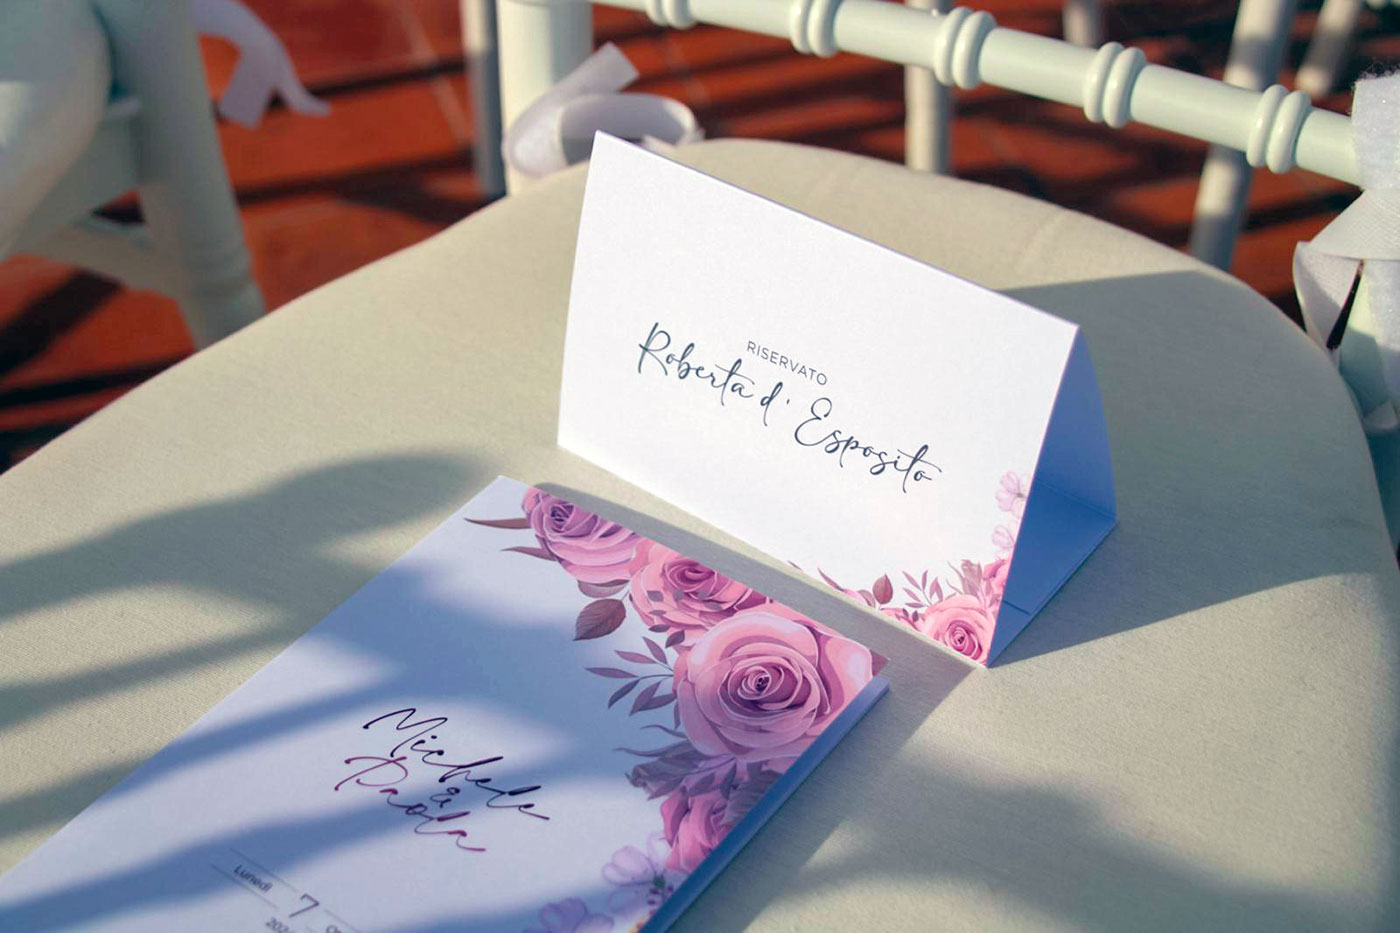 RISERVATO
Roberta d' Esposito
Michele
&
Paola
Lunedì
7